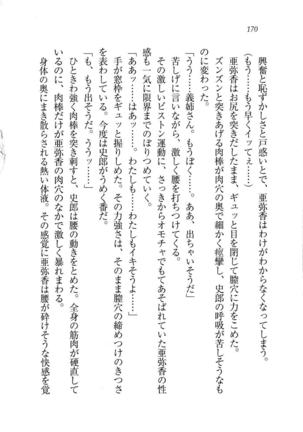 170
興奮と恥ずかしさと戸惑いとで、亜弥香はわけがわからなくなってしまう。
（もう……もう早くイッてぇ……）
亜弥香はお尻を突きだしたまま、ギュッと目を閉じて膣穴に力をこめた。
ズンズンと突きあげる肉棒が肉穴の奥で細かく痙攣し、史郎の呼吸が苦しそうなも
のに変わった。
「も……義姉さん。もうぼく……。ああ、出ちゃいそうだ」
苦しげに言いながら、激しく腰を打ちつけてくる。
その激しいピストン運動に、さっきからオモチャでもてあそばれていた亜弥香の性
感も一気に限界までのぼりつめていく。
「ああッ……はあッ……。わたしも……わたしもイキそうよ……」
手が窓枠をギュッと握りしめた。その力強さは、そのまま膣穴の締めつけのきつさ
を表わしている。今度は史郎がうめく番だ。
「も、もう出そうだ。ううッ……」
ひときわ強く肉棒を突き刺すと、史郎は腰の動きをとめた。全身の筋肉が硬直して
いるのに、肉棒だけが亜弥香の肉穴のなかで激しく暴れまわる。
身体の奥にまき散らされる熱い体液。その感覚に亜弥香は腰が砕けそうな快感を覚